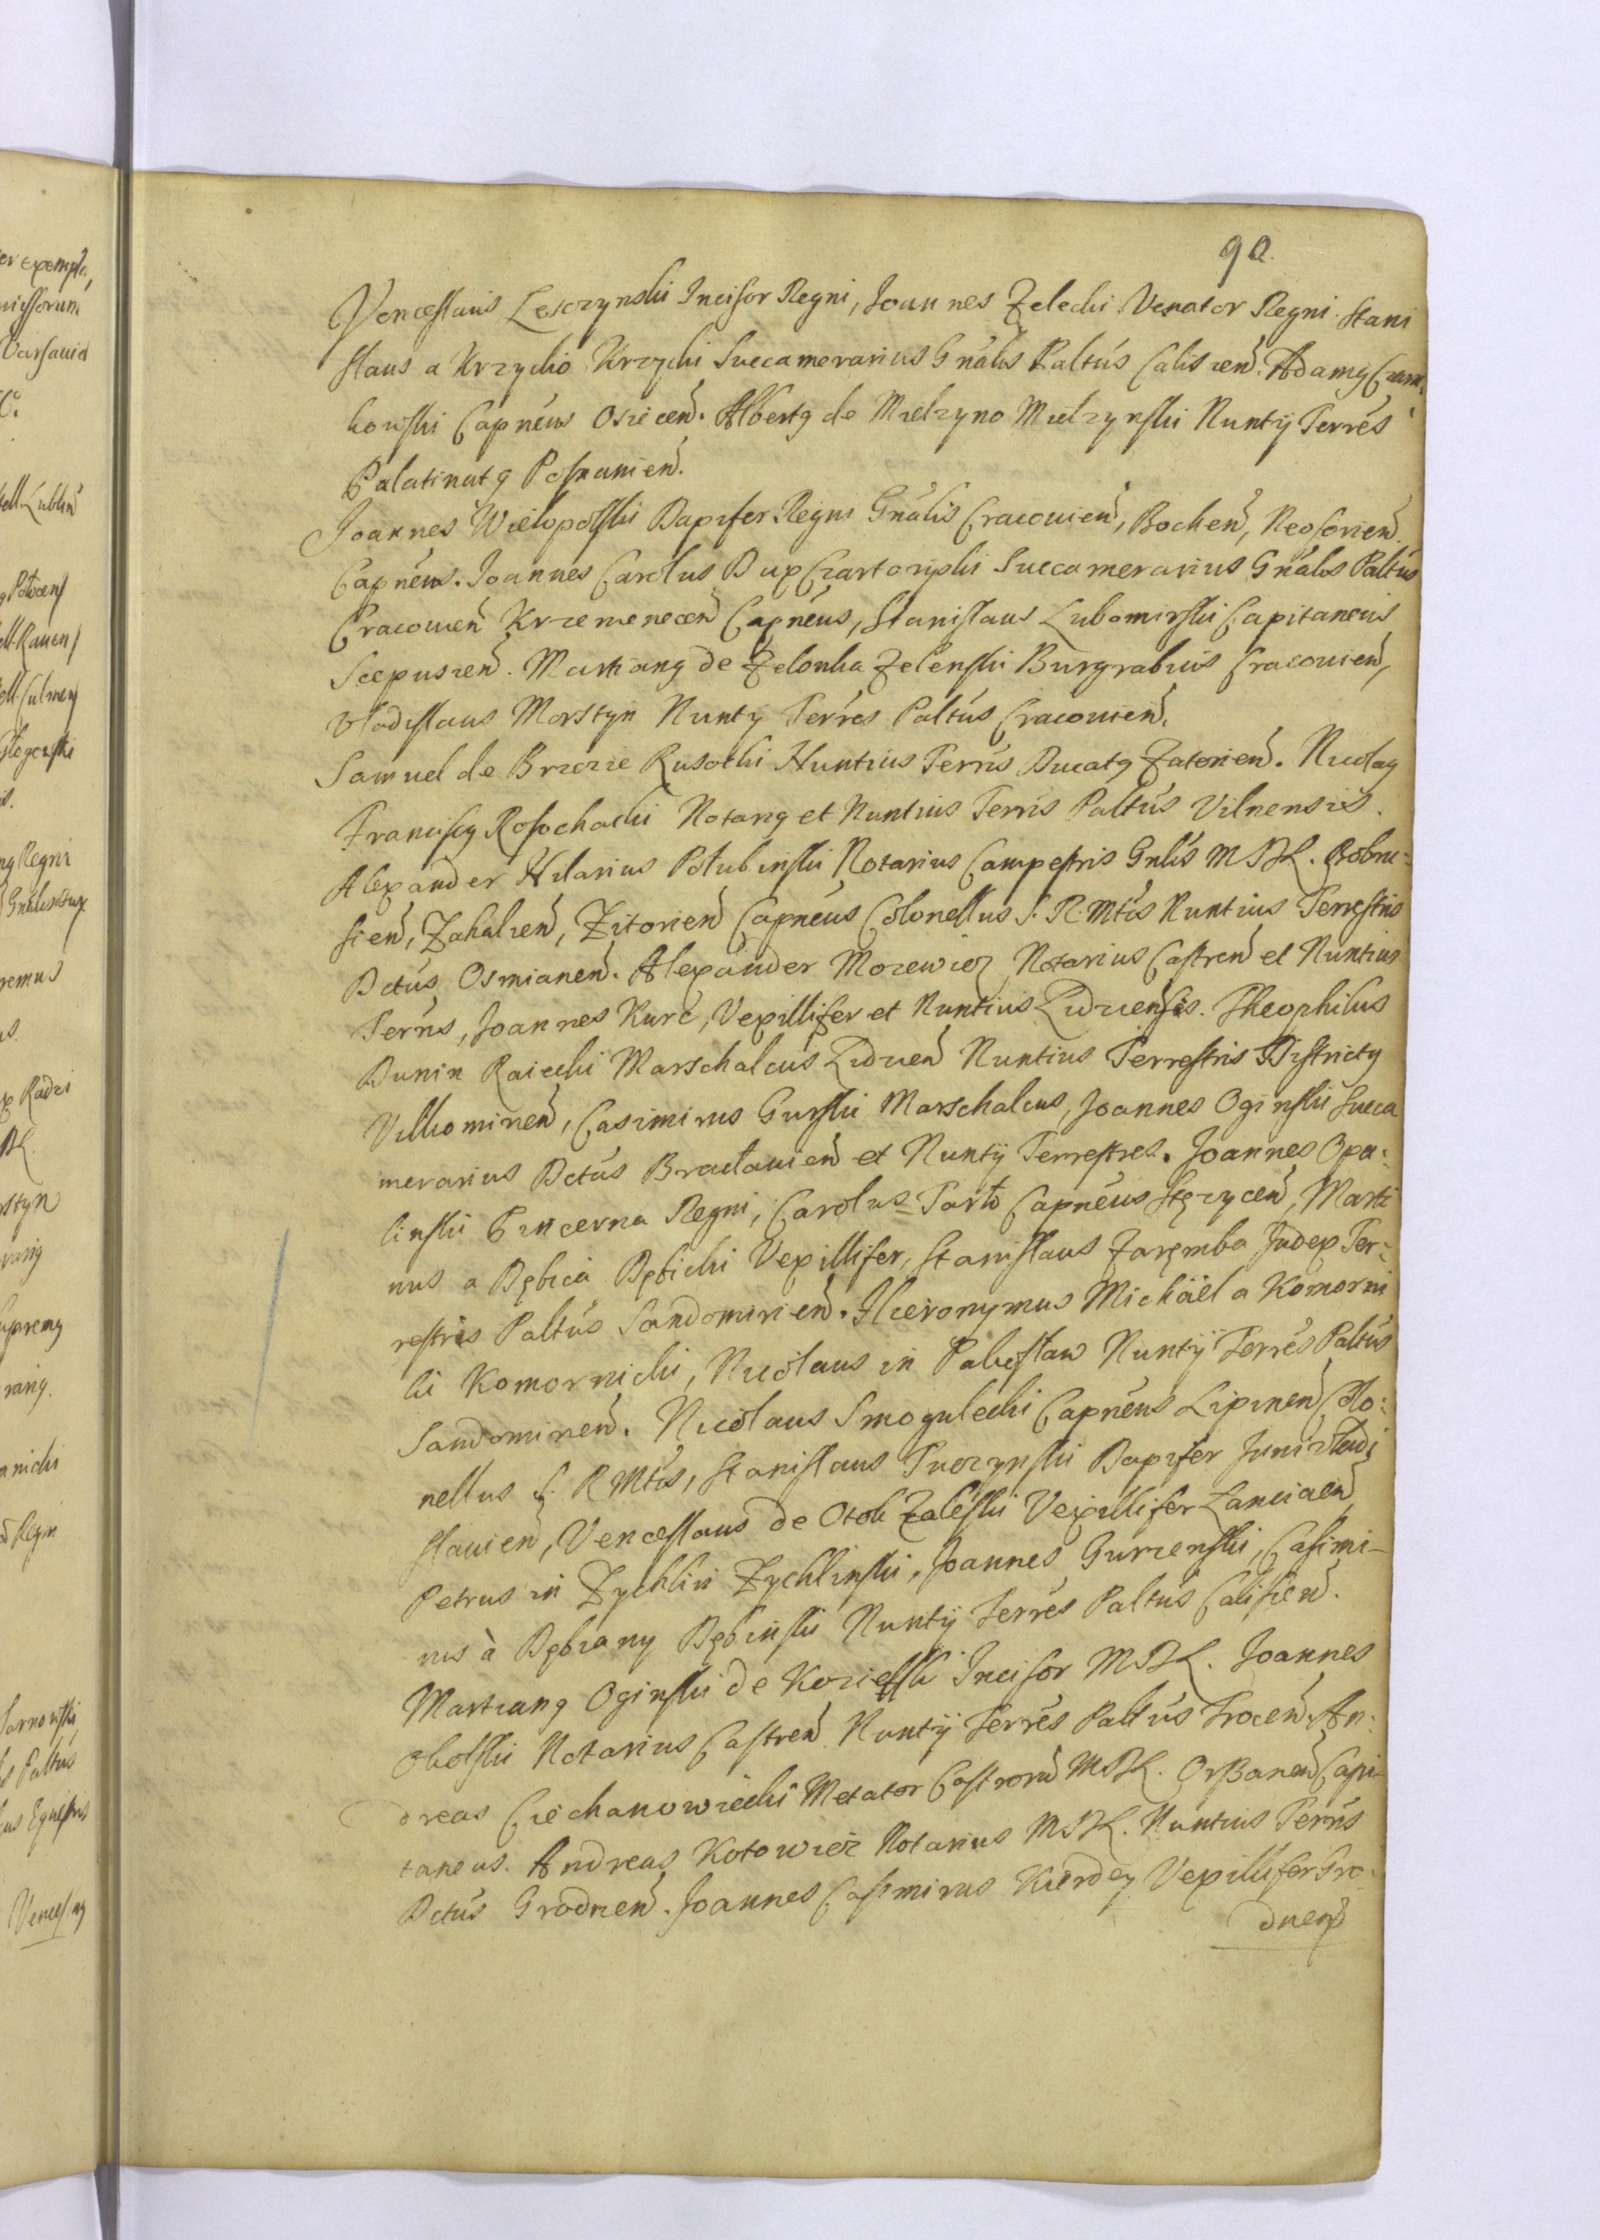 90.
Venceslaus Lesczynski Incisor Regni, Joannes Zelecki Venator Regni. Stani
slaus a Krzycko Krzycki Succamerarius Gnalis Paltus Calisien. Adamg Czarn,
kowski Capneus Osiecen. Albertg de Mielzyno Mielzynski Nuntij Terres
Palatinatg Posnanien.
Joannes Wielopolski Dapifer Regni Gnalis Cracovien, Bochen, Neoforien
Capneus. Joannes Carolus Dux Czartoriyski Succamerarius Gnalis Paltus
Cracovien Krzemenecen Capneus, Stanislaus Lubomirski Capitaneus
Scepusien. Martiang de Zelonka Zelenski Burgrabius Cracovien,
Vladislaus Morstyn Nuntij Terres Paltus Cracovien.
Samuel de Brzezie Rusocki Nuntius Terris Ducatg Zatorien. Nicolag
Franciscg Rosochacki Notarig et Nuntius Terris Paltus Vilnensis.
Alexander Hilarius Polubinski Notarius Campestris Gnlis MDL. Bobru-
sien, Zahalien, Zitorien Capneus Colonellus S. R. Mtis Nuntius Terrestris
Dctus Osmianen. Alexander Mozewicz Notarius Castren et Nuntius
Terris, Joannes Kurc, Vexillifer et Nuntius Lidiensis. Theophilus
Dunin Raiecki Marschalcus Lidien Nuntius Terrestris Districtg
Vilkomirien, Casimirus Gurski Marschalcus, Joannes Oginski Succa
merarius Dctus Braclavien et Nuntij Terrestres. Joannes Opa-
linski Pincerna Regni, Carolus Tarlo Capneus Stęzycen, Marti
nus a Dębica Dębicki Vexillifer, Stanislaus Zaręmba Judex Ter-
restris Paltus Sandomirien. Hieronymus Michäel a Komorni
ki Komornicki, Nicolaus in Nuntij Terres Paltus
Sandomirien. Nicolaus Smogulecki Capneus Lipinen Colo-
nellus S. R Mtis, Stanislaus Tuczynski Dapifer Junivladi
slavien, Venceslaus de Otok Zaleski Vexillifer Lancicien,
Petrus in Zychlin Zychlinski, Joannes Gurzenski, Casimi-
rus à Dębiany Dębinski Nuntij Terres Paltus Calisien.
Martiang Oginski de Kozielsk Incisor MDL. Joannes
Okolski Notarius Castren Nuntij Terres Paltus Trocen. An-
dreas Ciechanowiecki Metator Castroru MDL. Orßanen Capi-
taneus. Andreas Kotowicz Notarius MDL. Nuntius Terris
Dctus Grodnen. Joannes Casimirus Kierdey Vexillifer Gro-
dnens